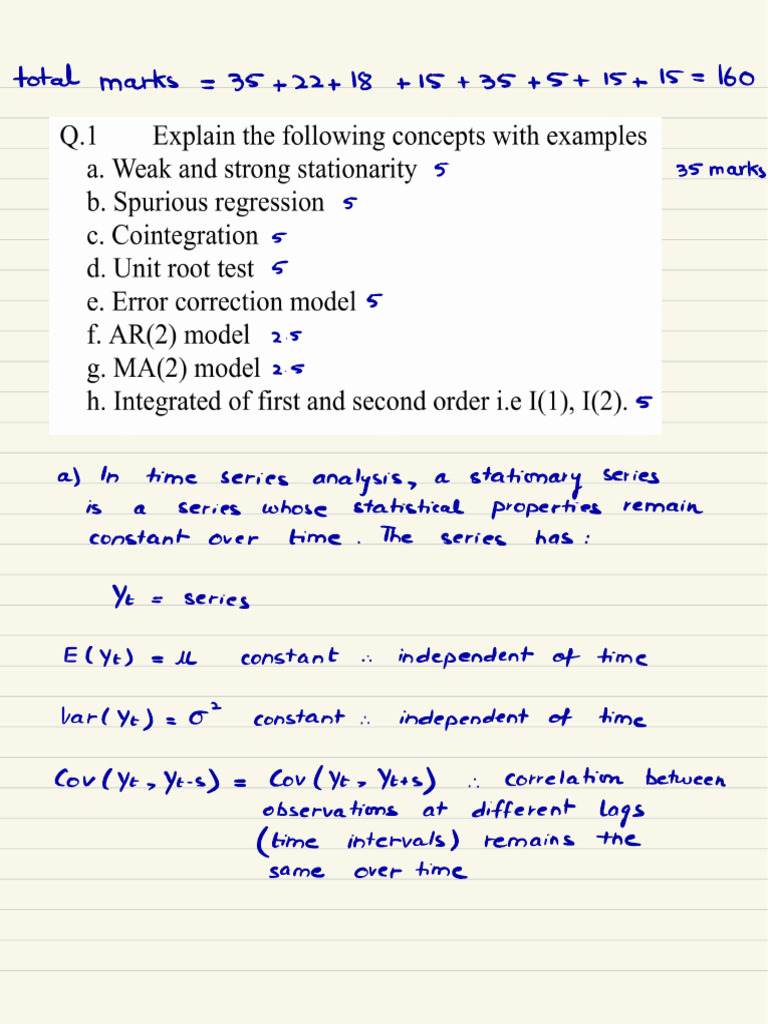 total marks = 35 + 22 + 18 + 15 + 35 + 5 + 15 + 15 = 160
Q.1 Explain the following concepts with examples
a. Weak and strong stationarity 5 35 marks
b. Spurious regression 5
c. Cointegration 5
d. Unit root test 5
e. Error correction model 5
f. AR(2) model 2.5
g. MA(2) model 2.5
h. Integrated of first and second order i.e I(1), I(2). 5
a) In time series analysis, a stationary series
is a series whose statistical properties remain
constant over time. The series has:
Yt = series
E(Yt) = μ constant ∴ independent of time
Var(Yt) = σ² constant ∴ independent of time
Cov(Yt, Yt-s) = Cov(Yt, Yt+s) ∴ correlation between
observations at different lags
(time intervals) remains the
same over time